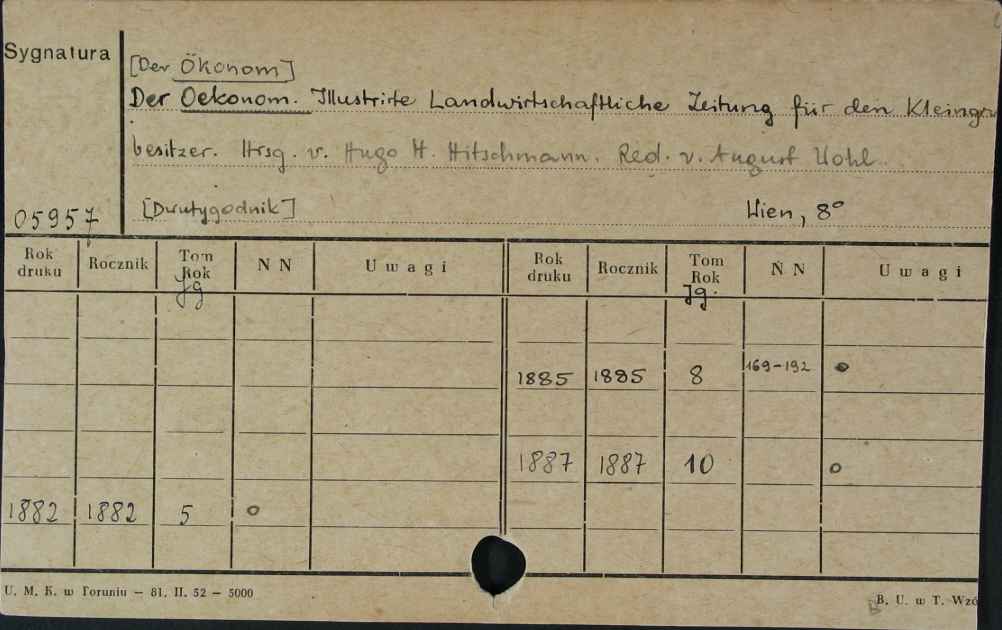 Sygnatura
[Der Ökonom]
Der Oekonom. Illustrirte Landwirtschaftliche Zeitung für den Kleingru
besitzer. Hrsg. v. Hugo H. Hitschmann. Red. v. August Uohl.
05957 [Dwutygodnik] Wien, 8°
Rok druku Rocznik Tom Rok N N Uwagi Rok druku Rocznik Tom Rok N N Uwagi
Jg Jg.
1885 1885 8 169-192 o
1887 1887 10 o
1882 1882 5 o
U. M. K. w Toruniu — 81. II. 52 — 5000 B. U. w T. Wzó